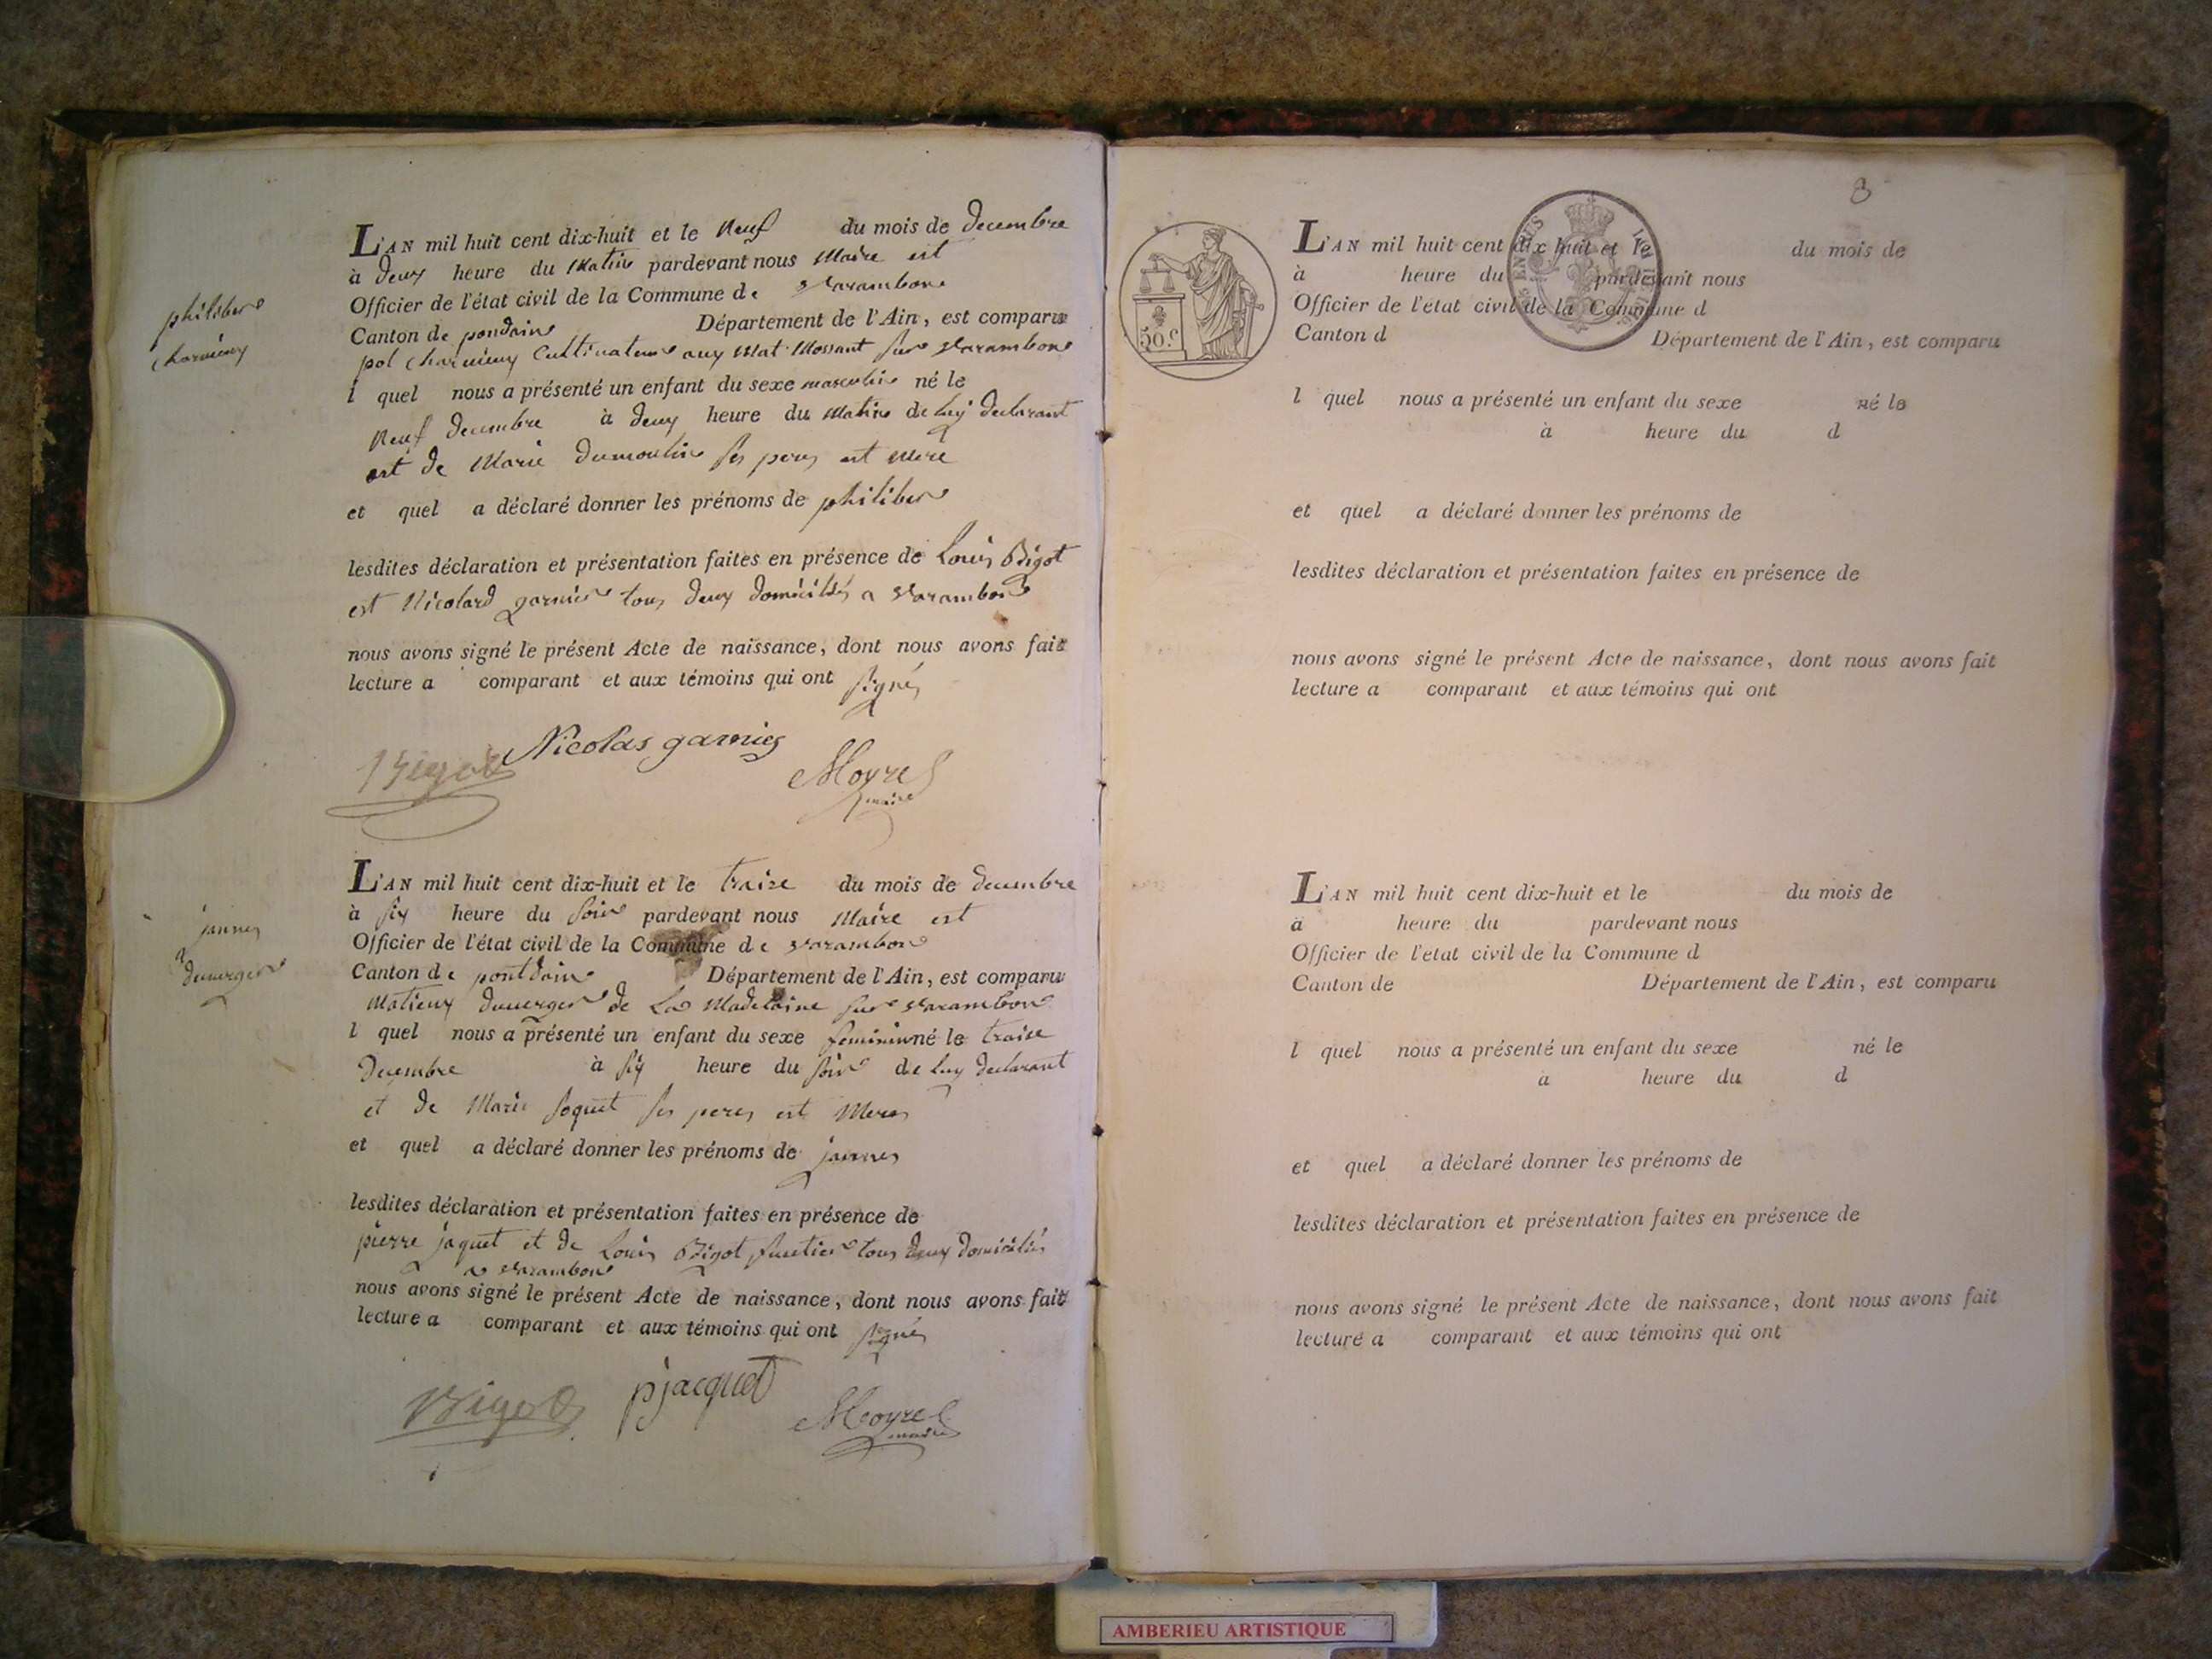 philiber
charvieux
L'AN mil huit cent dix-huit et le neuf du mois de decembre
à deux heure du matin pardevant nous Maire est
Officier de l'état civil de la Commune de varambon
Canton de pondain Département de l'Ain, est comparu
pol charvieux Cultivateur aux Mat Mossant sur varambon
l quel nous a présenté un enfant du sexe masculin né le
neuf decembre à deux heure du matin de luy declarant
est de Marie dumoulin ses peres est mere
et quel a déclaré donner les prénoms de philiber
lesdites déclaration et présentation faites en présence de Louis Bigot
est Nicolard garnier tous deux domicilsés a varambon
nous avons signé le présent Acte de naissance, dont nous avons fait
lecture a comparant et aux témoins qui ont signés
Bigot Nicolas garnier Moyret
maire
jannes
duverger
L'AN mil huit cent dix-huit et le traize du mois de decembre
à six heure du soir pardevant nous Maire est
Officier de l'état civil de la Commune de varambon
Canton de pontdain Département de l'Ain, est comparu
Matieux duverger de La Madelaine sur varambon
l quel nous a présenté un enfant du sexe feminin né le traise
Decembre à six heure du soir de luy declarant
et de Marie soquet ses peres est Meres
et quel a déclaré donner les prénoms de jannes
lesdites déclaration et présentation faites en présence de
pierre jaquet et de Louis Bigot tous deux domiciliés
a varambon
nous avons signé le présent Acte de naissance, dont nous avons fait
lecture a comparant et aux témoins qui ont signés
Bigot pjacquet Moyret
maire
8
50.c
L'AN mil huit cent dix huit et le du mois de
à heure du pardevant nous
Officier de l'état civil de la Commune d
Canton d Département de l'Ain, est comparu
l quel nous a présenté un enfant du sexe né le
à heure du d
et quel a déclaré donner les prénoms de
lesdites déclaration et présentation faites en présence de
nous avons signé le présent Acte de naissance, dont nous avons fait
lecture a comparant et aux témoins qui ont
L'AN mil huit cent dix-huit et le du mois de
à heure du pardevant nous
Officier de l'état civil de la Commune d
Canton de Département de l'Ain, est comparu
l quel nous a présenté un enfant du sexe né le
à heure du d
et quel a déclaré donner les prénoms de
lesdites déclaration et présentation faites en présence de
nous avons signé le présent Acte de naissance, dont nous avons fait
lecture a comparant et aux témoins qui ont
AMBERIEU ARTISTIQUE